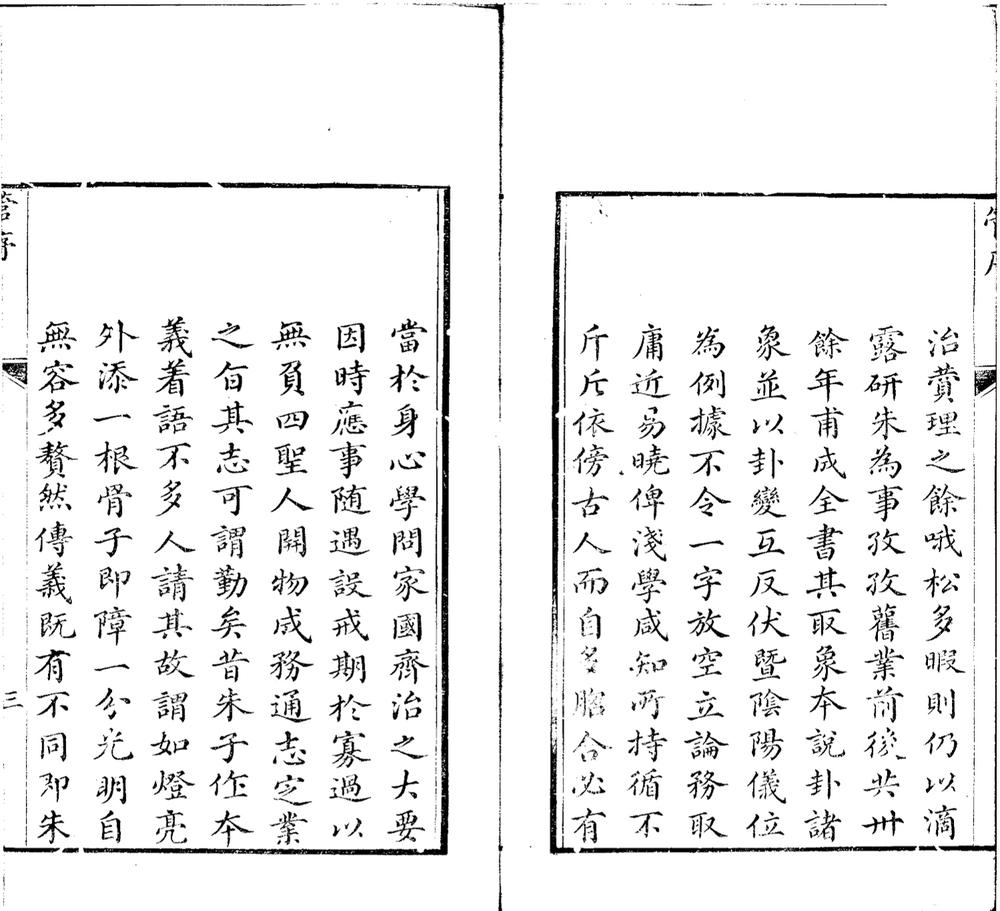 治賫理之餘哦松多暇則仍以滴
露研朱為事孜孜舊業前後共卅
餘年甫成全書其取象本說卦諸
象並以卦變互反伏暨陰陽儀位
為例據不令一字放空立論務取
庸近易曉俾淺學咸知所持循不
斤斤依傍古人而自多脗合必有
當於身心學問家國齊治之大要
因時應事隨遇設戒期於寡過以
無負四聖人開物成務通志定業
之旨其志可謂勤矣昔朱子作本
義着語不多人請其故謂如燈亮
外添一根骨子即障一分光明自
無容多贅然傳義既有不同即朱
三